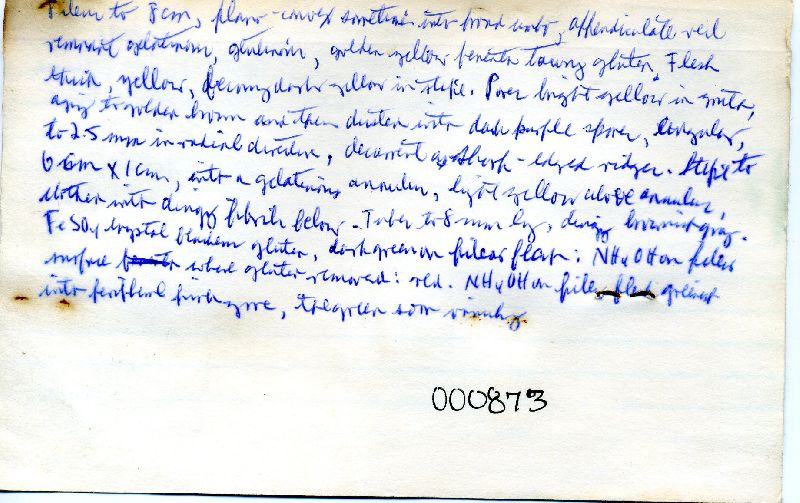 Pileus to 8 cm, plano-convex sometimes with broad umbo, appendiculate veil
remnant gelatinous, gelatinous, golden yellow beneath tawny gluten. Flesh
thick, yellow, becoming dark yellow in stipe. Pores bright yellow in youth,
age to golden brown and then darker with dark purple spores, angular,
to 2.5 mm in radial direction, decurrent as sharp-edged ridges. Stipe to
6 cm x 1 cm, with a gelatinous annulus, light yellow above annulus,
clothed with dingy fibrils below. Tubes to 8 mm lg, dingy brownish gray.
FeSO4 crystal blackens gluten, dark green on pileus flesh: NH4OH on pileus
surface where gluten removed: red. NH4OH on pileus flesh greenish
with peripheral pink zone, the green soon vanishing.
000873